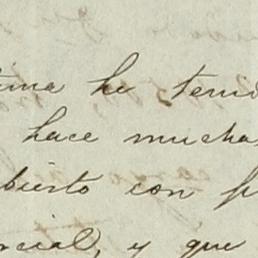 tima he teni
hace muchas
bierto con p
rcial, y que